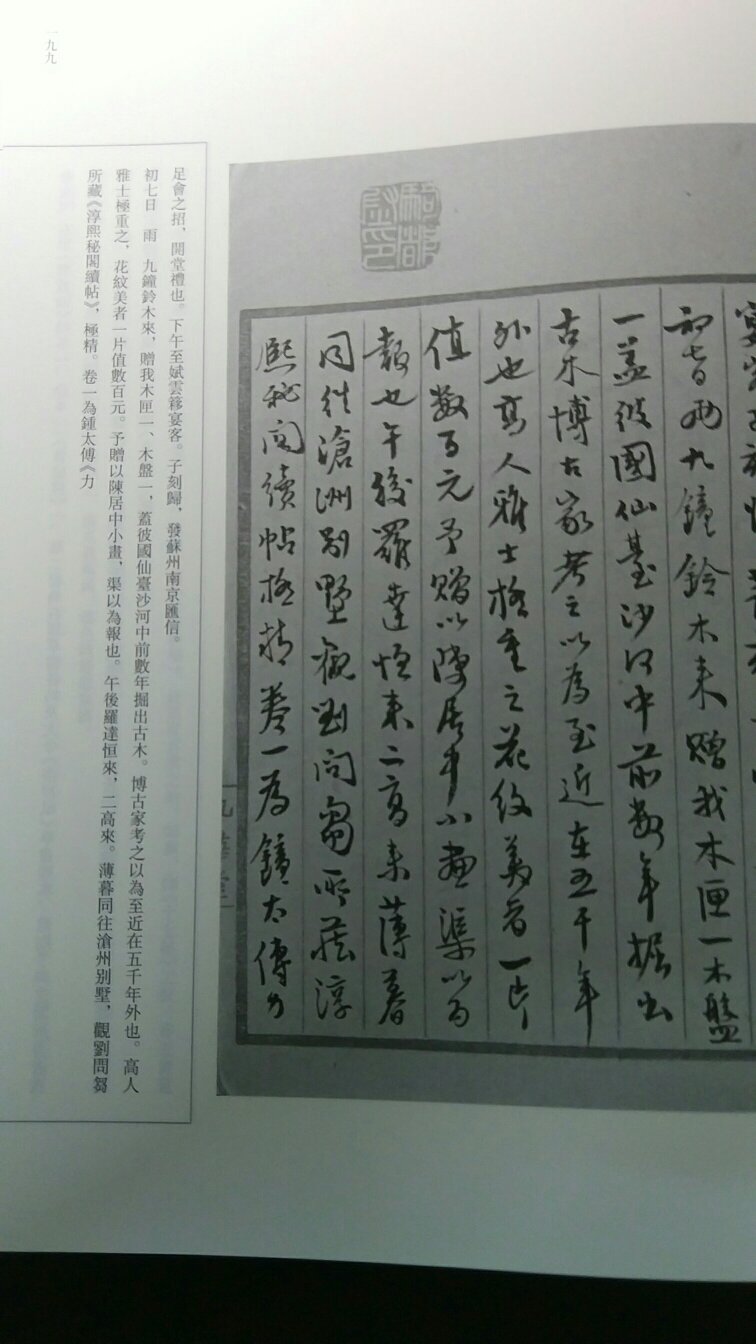 初七日雨九鐘鈴木来贈我木匣一木盤
一蓋彼國仙臺沙河中前數年掘出
古木博古家考之以為至近在五千年
外也高人雅士極重之花紋美者一片
值數百元予贈以陳居中小畫渠以為
報也午後羅達恒来二高来薄暮
同往滄洲别墅觀劉問芻所藏淳
熙秘閣續帖極精卷一為鍾太傅力
足會之招，開堂禮也。下午至斌雲簃宴客。子刻歸，發蘇州南京匯信。
初七日　雨　九鐘鈴木來，贈我木匣一、木盤一，蓋彼國仙臺沙河中前數年掘出古木。博古家考之以為至近在五千年外也。高人
雅士極重之，花紋美者一片值數百元。予贈以陳居中小畫，渠以為報也。午後羅達恒來，二高來。薄暮同往滄州别墅，觀劉問芻
所藏《淳熙秘閣續帖》，極精。卷一為鍾太傅《力
一九九